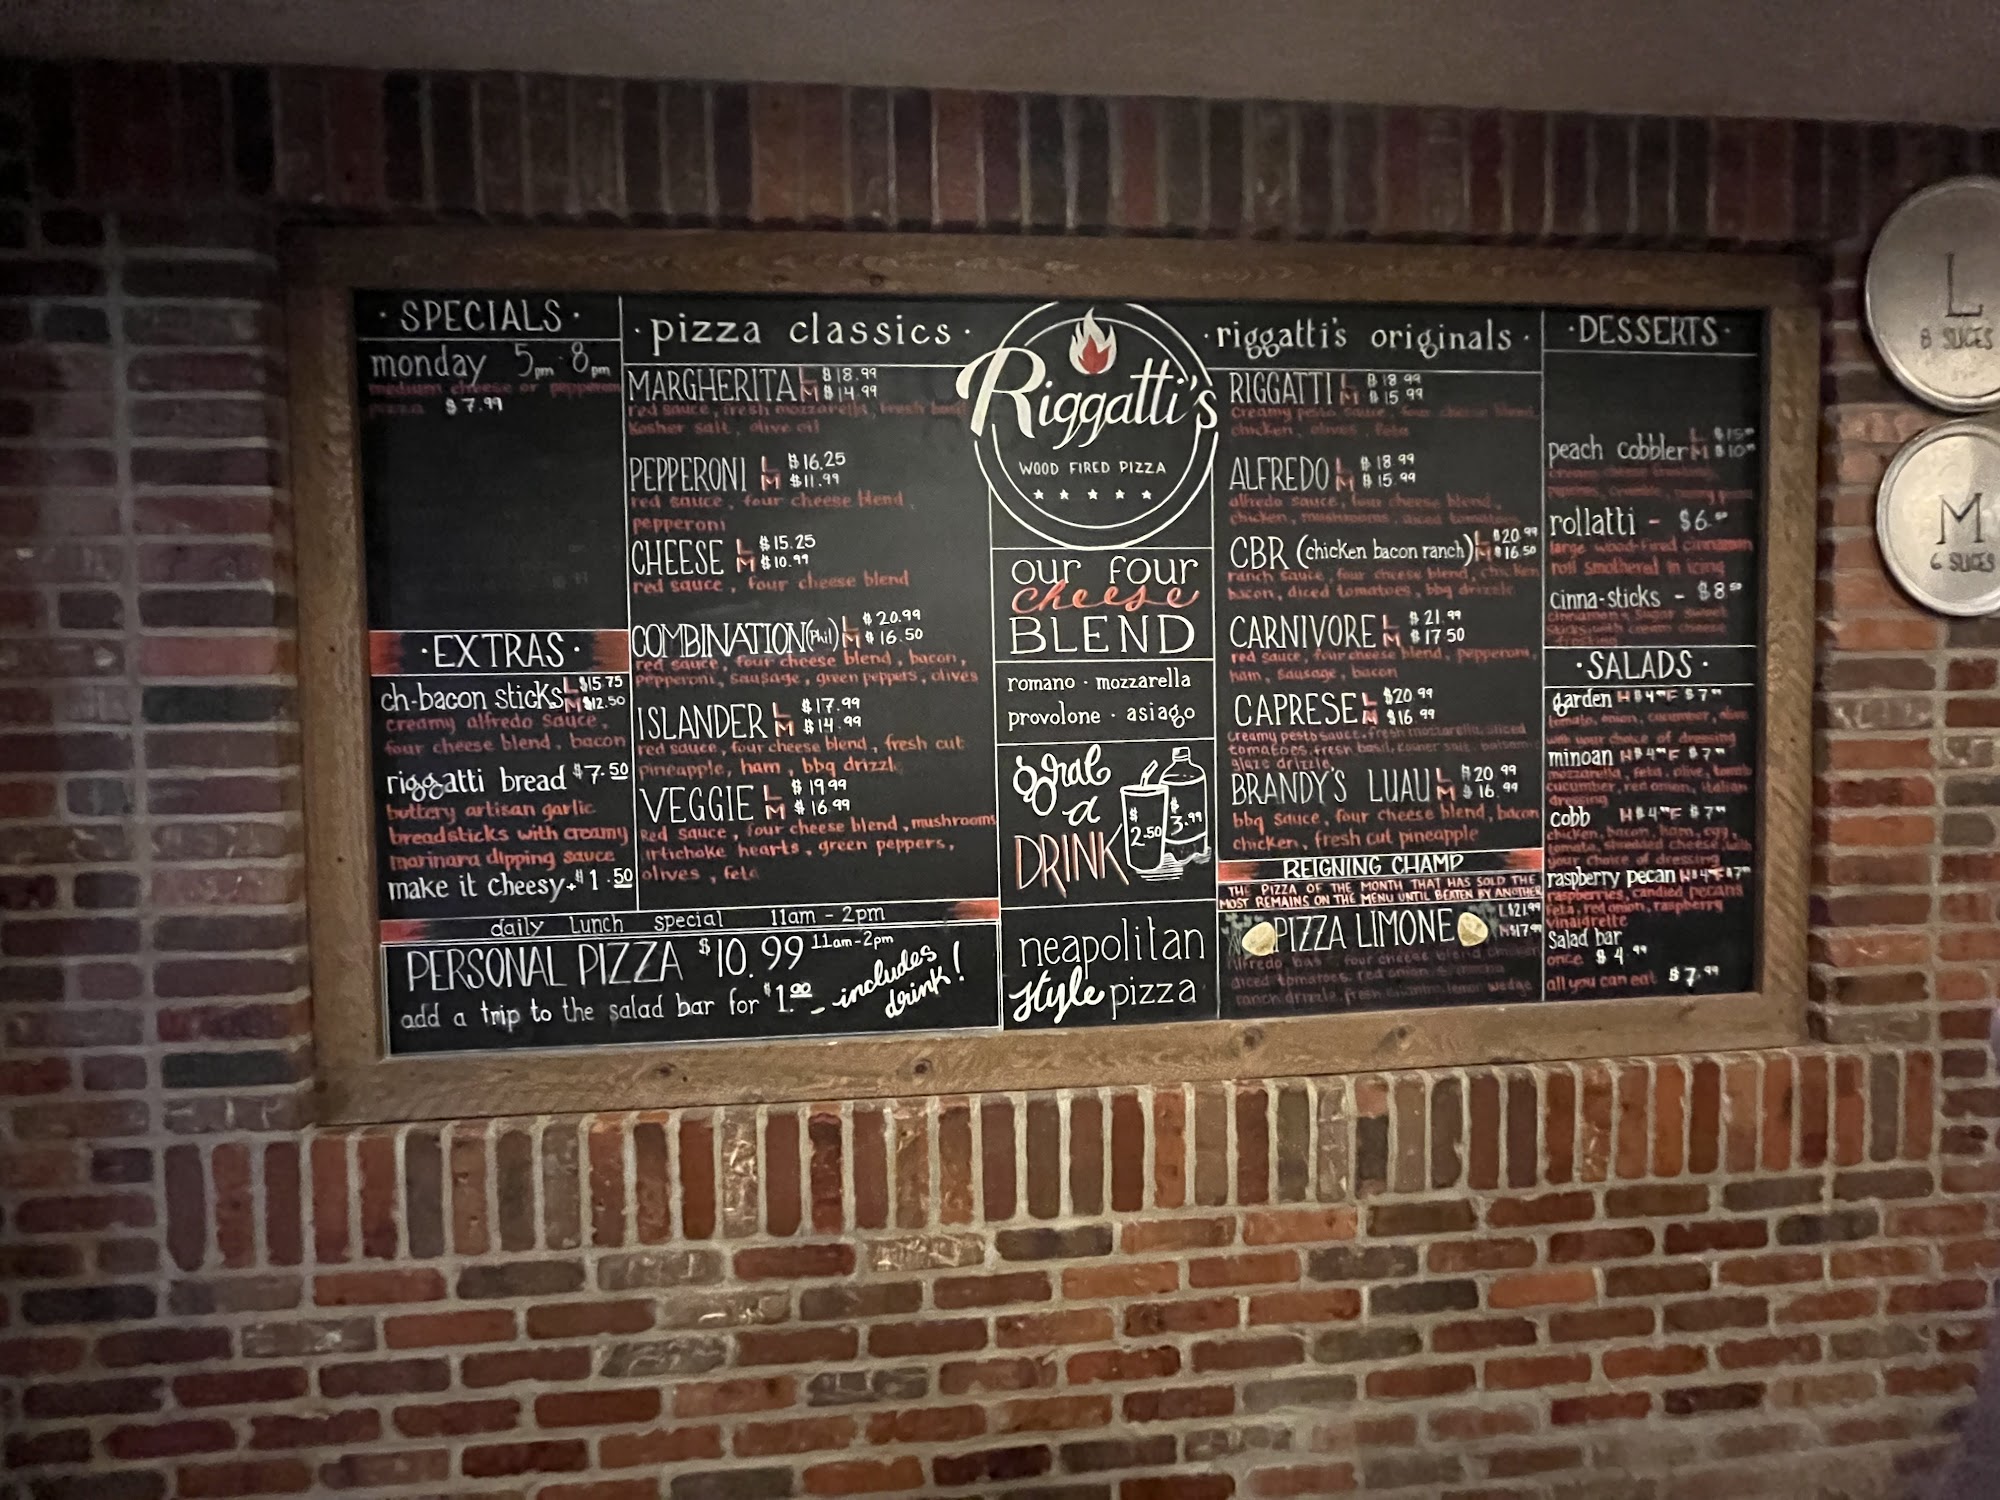 · SPECIALS ·
monday 5pm 8pm
medium cheese or pepperoni
pizza $7.99
· EXTRAS ·
ch-bacon sticks L $15.75
M $12.50
creamy alfredo sauce,
four cheese blend, bacon
riggatti bread $7.50
buttery artisan garlic
breadsticks with creamy
marinara dipping sauce
make it cheesy + $1.50
· pizza classics ·
MARGHERITA L $18.99
M $14.99
red sauce, fresh mozzarella, fresh basil
Kosher salt, olive oil
PEPPERONI L $16.25
M $11.99
red sauce, four cheese blend,
pepperoni
CHEESE L $15.25
M $10.99
red sauce, four cheese blend
COMBINATION (Phil) L $20.99
M $16.50
red sauce, four cheese blend, bacon,
pepperoni, sausage, green peppers, olives
ISLANDER L $17.99
M $14.99
red sauce, four cheese blend, fresh cut
pineapple, ham, bbq drizzle
VEGGIE L $19.99
M $16.99
Red sauce, four cheese blend, mushrooms
artichoke hearts, green peppers,
olives, feta
daily lunch special 11am - 2pm
PERSONAL PIZZA $10.99 11am-2pm
add a trip to the salad bar for $1.00 - includes
drink!
Riggatti's
WOOD FIRED PIZZA
our four
cheese
BLEND
romano · mozzarella
provolone · asiago
grab
a
DRINK
$2.50
$3.99
neapolitan
style pizza
· riggatti's originals ·
RIGGATTI L $18.99
M $15.99
Creamy pesto sauce, four cheese blend,
chicken, olives, feta
ALFREDO L $18.99
M $15.99
alfredo sauce, four cheese blend,
chicken, mushrooms, diced tomatoes
CBR (chicken bacon ranch) L $20.99
M $16.50
ranch sauce, four cheese blend, chicken
bacon, diced tomatoes, bbq drizzle
CARNIVORE L $21.99
M $17.50
red sauce, four cheese blend, pepperoni,
ham, sausage, bacon
CAPRESE L $20.99
M $16.99
Creamy pesto sauce, fresh mozzarella, sliced
tomatoes, fresh basil, kosher salt, balsamic
glaze drizzle
BRANDY'S LUAU L $20.99
M $16.99
bbq sauce, four cheese blend, bacon
chicken, fresh cut pineapple
REIGNING CHAMP
THE PIZZA OF THE MONTH THAT HAS SOLD THE
MOST REMAINS ON THE MENU UNTIL BEATEN BY ANOTHER
PIZZA LIMONE L $21.99
M $17.99
Alfredo base, four cheese blend, chicken
diced tomatoes, red onion
ranch drizzle, fresh cilantro, lemon wedge
· DESSERTS ·
peach cobbler L $15
M $10
rollatti - $6
large wood-fired cinnamon
roll smothered in icing
cinna-sticks - $8.50
cinnamon & sugar sweet
sticks with cream cheese
frosting
· SALADS ·
garden H $4 F $7
tomato, onion, cucumber, olive
with your choice of dressing
minoan H $4 F $7
mozzarella, feta, olive, tomato
cucumber, red onion, italian
dressing
cobb H $4 F $7
chicken, bacon, ham, egg,
tomato, shredded cheese, with
your choice of dressing
raspberry pecan H $4 F $7
raspberries, candied pecans
feta, red onion, raspberry
vinaigrette
Salad bar
once $4.99
all you can eat $7.99
L
8 SLICES
M
6 SLICES